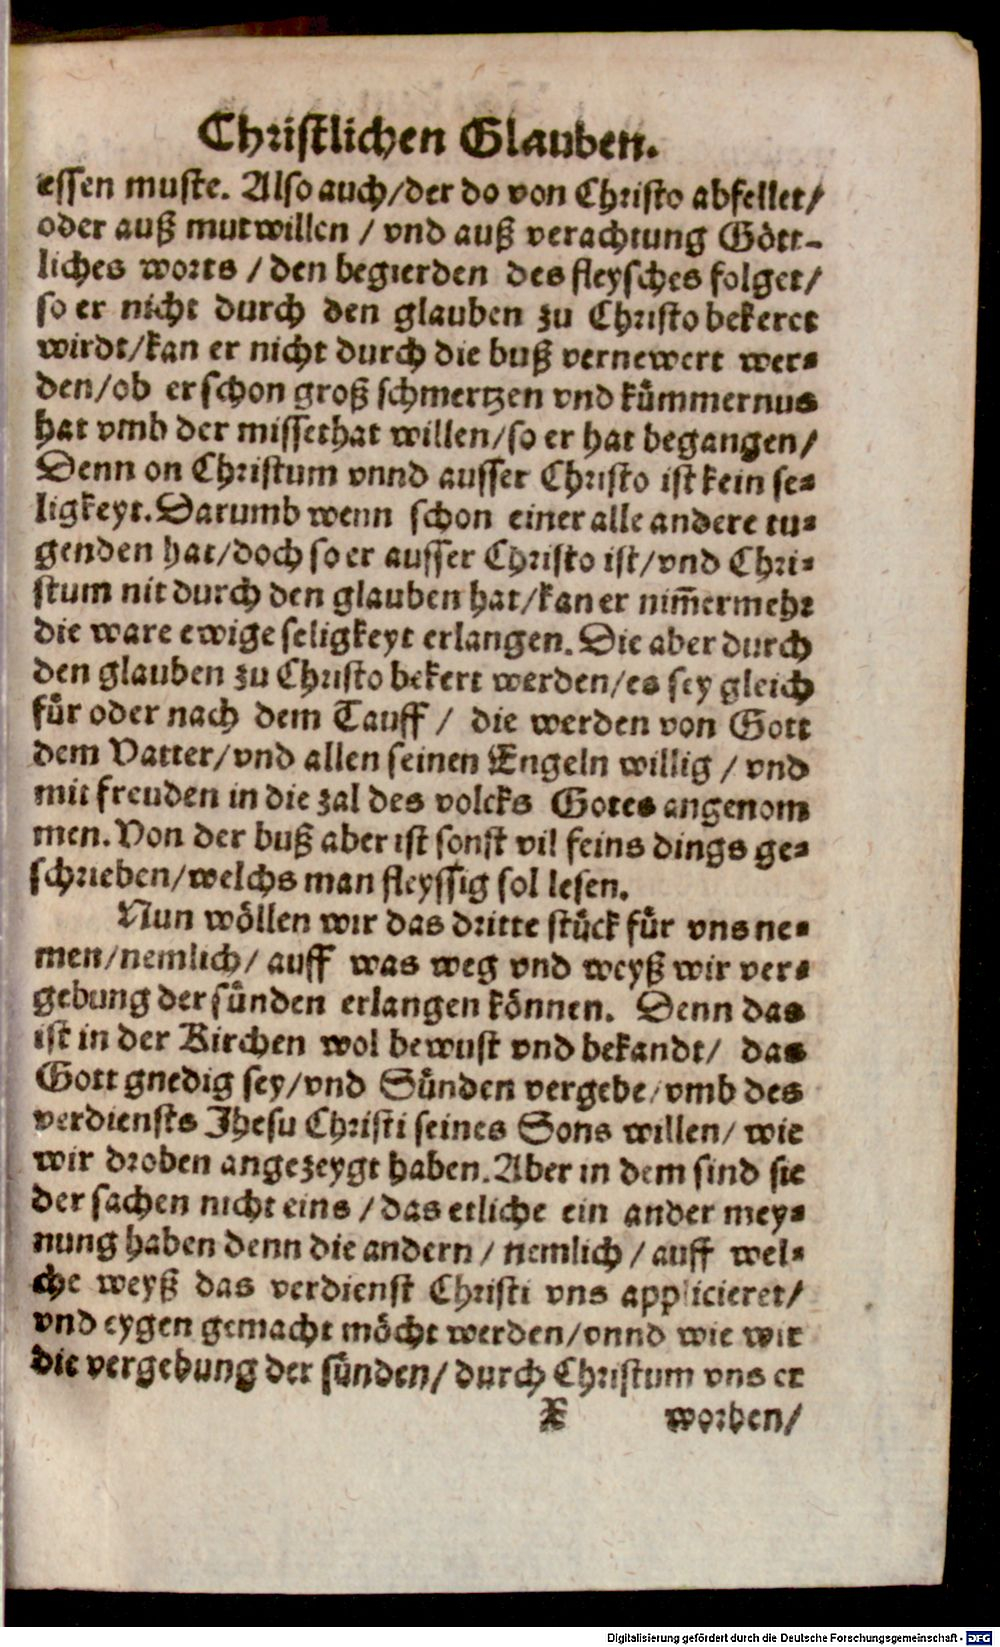 Christlichen Glauben.
essen muste. Also auch/der do von Christo abfellet/
oder auß mutwillen / vnd auß verachtung Gött-
liches worts / den begierden des fleysches folget/
so er nicht durch den glauben zu Christo bekeret
wirdt/kan er nicht durch die buß vernewert wer-
den/ob er schon groß schmertzen vnd kümmernus
hat vmb der missethat willen/so er hat begangen/
Denn on Christum vnnd ausser Christo ist kein se-
ligkeyt. Darumb wenn schon einer alle andere tu-
genden hat/doch so er ausser Christo ist/vnd Chri-
stum nit durch den glauben hat/kan er nim̃ermehr
die ware ewige seligkeyt erlangen. Die aber durch
den glauben zu Christo bekert werden/es sey gleich
für oder nach dem Tauff / die werden von Gott
dem Vatter/vnd allen seinen Engeln willig / vnd
mit freuden in die zal des volcks Gotes angenom
men. Von der buß aber ist sonst vil feins dings ge-
schrieben/welchs man fleyssig sol lesen.
Nun wöllen wir das dritte stück für vns ne-
men/nemlich/ auff was weg vnd weyß wir ver-
gebung der sünden erlangen können. Denn das
ist in der Kirchen wol bewust vnd bekandt/ das
Gott gnedig sey/vnd Sünden vergebe/vmb des
verdiensts Jhesu Christi seines Sons willen/ wie
wir droben angezeygt haben. Aber in dem sind sie
der sachen nicht eins / das etliche ein ander mey-
nung haben denn die andern / nemlich / auff wel-
che weyß das verdienst Christi vns applicieret/
vnd eygen gemacht möcht werden/vnnd wie wir
die vergebung der sünden/ durch Christum vns er
X worben/
Digitalisierung gefördert durch die Deutsche Forschungsgemeinschaft - DFG